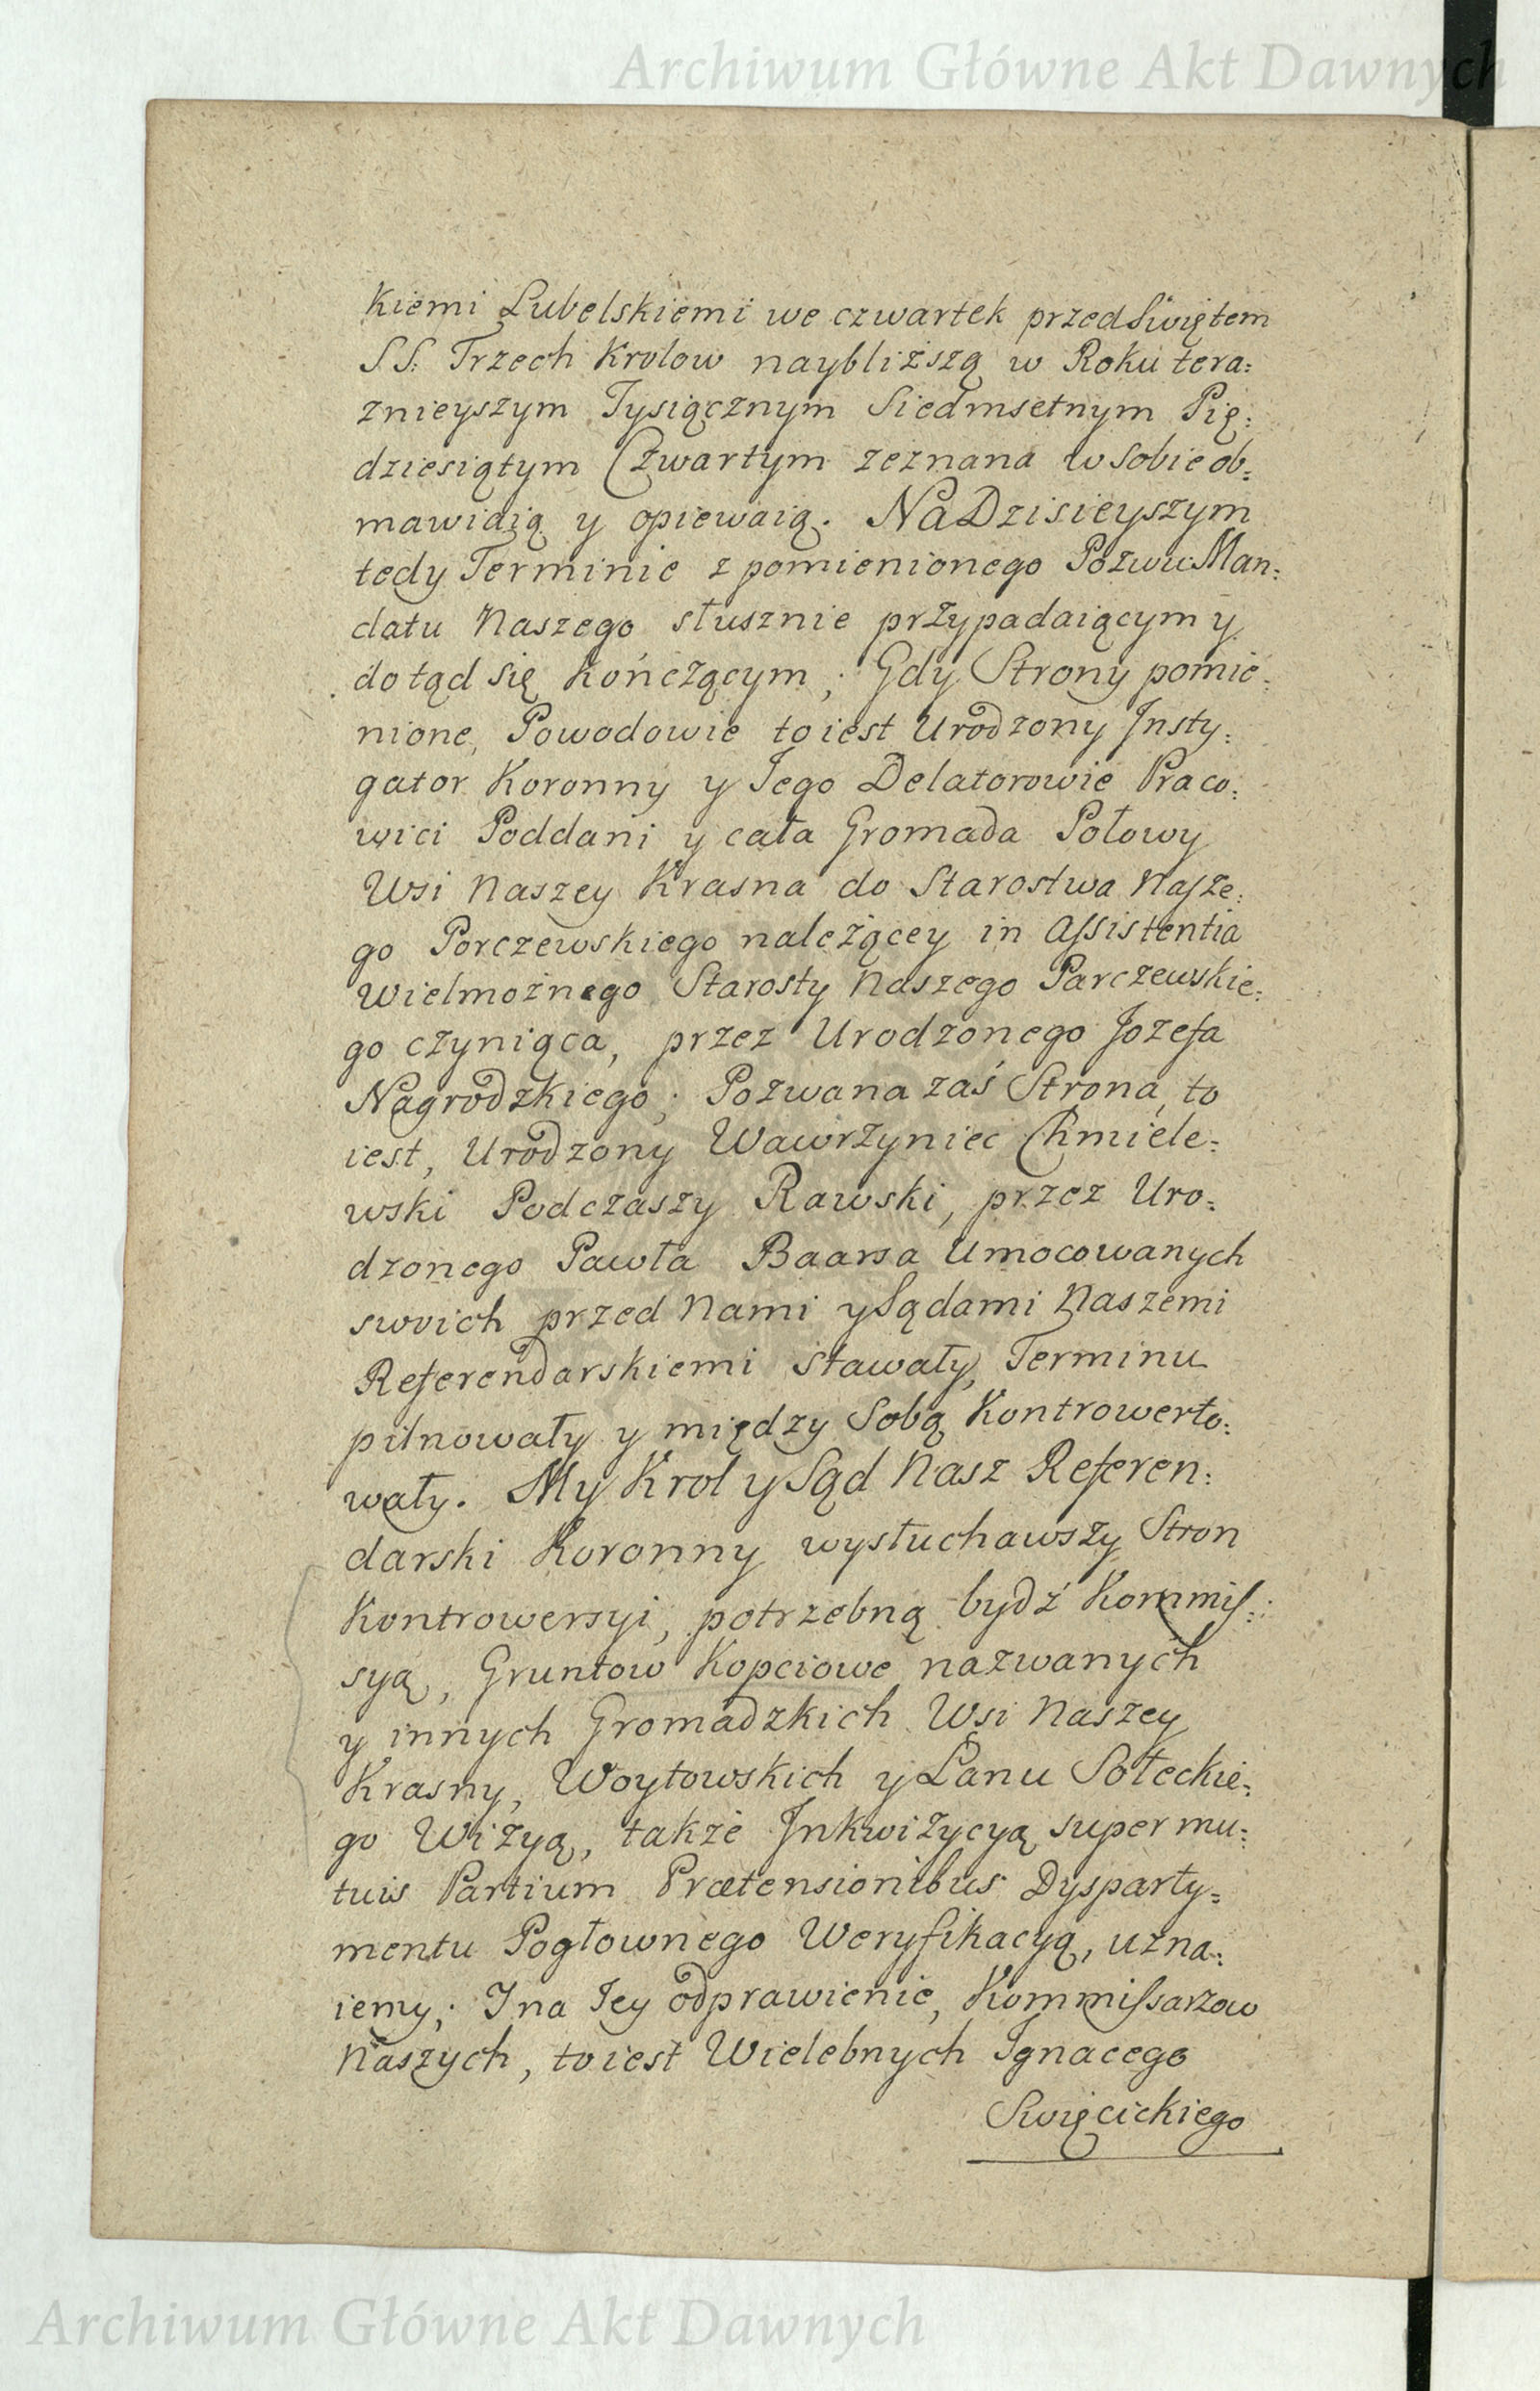 Archiwum Główne Akt Dawnych
kiemi Lubelskiemi we czwartek przed Swiętem
SS. Trzech Krolow naybliższą w Roku tera=
znieyszym Tysiącznym Siedmsetnym Pię=
dziesiątym Czwartym zeznana w sobie ob=
mawiaią y opiewaią. Na Dzisieyszym
tedy Terminie z pomienionego Pozwu Man=
datu Naszego słusznie przypadaiącym y
dotąd się kończącym; Gdy Strony pomie=
nione, Powodowie to iest Urodzony Insty=
gator Koronny y Jego Delatorowie Praco=
wici Poddani y cała Gromada Połowy
Wsi Naszey Krasna do Starostwa Nasze=
go Porczewskiego należącey in Assistentia
Wielmożnego Starosty Naszego Parczewskie=
go czyniąca, przez Urodzonego Jozefa
Nagrodzkiego; Pozwana zaś Strona, to
iest, Urodzony Wawrzyniec Chmiele=
wski Podczaszy Rawski, przez Uro=
dzonego Pawła Baarsa Umocowanych
swoich przed Nami y Sądami Naszemi
Referendarskiemi stawały, Terminu
pilnowały y między Sobą Kontrowerto=
wały. My Krol y Sąd Nasz Referen=
darski Koronny wysłuchawszy Stron
Kontrowersyi, potrzebną bydź Kommis=
syą, Gruntow Kopciowe nazwanych
y innych Gromadzkich Wsi Naszey
Krasny, Woytowskich y Łanu Sołeckie=
go Wizyą, także Inkwizycyą super mu=
tuis Partium Prætensionibus Dysparty=
mentu Pogłownego Weryfikacyą, uzna=
iemy; I na Jey odprawienie, Kommissarzow
Naszych, to iest Wielebnych Ignacego
Swięcickiego
Archiwum Główne Akt Dawnych